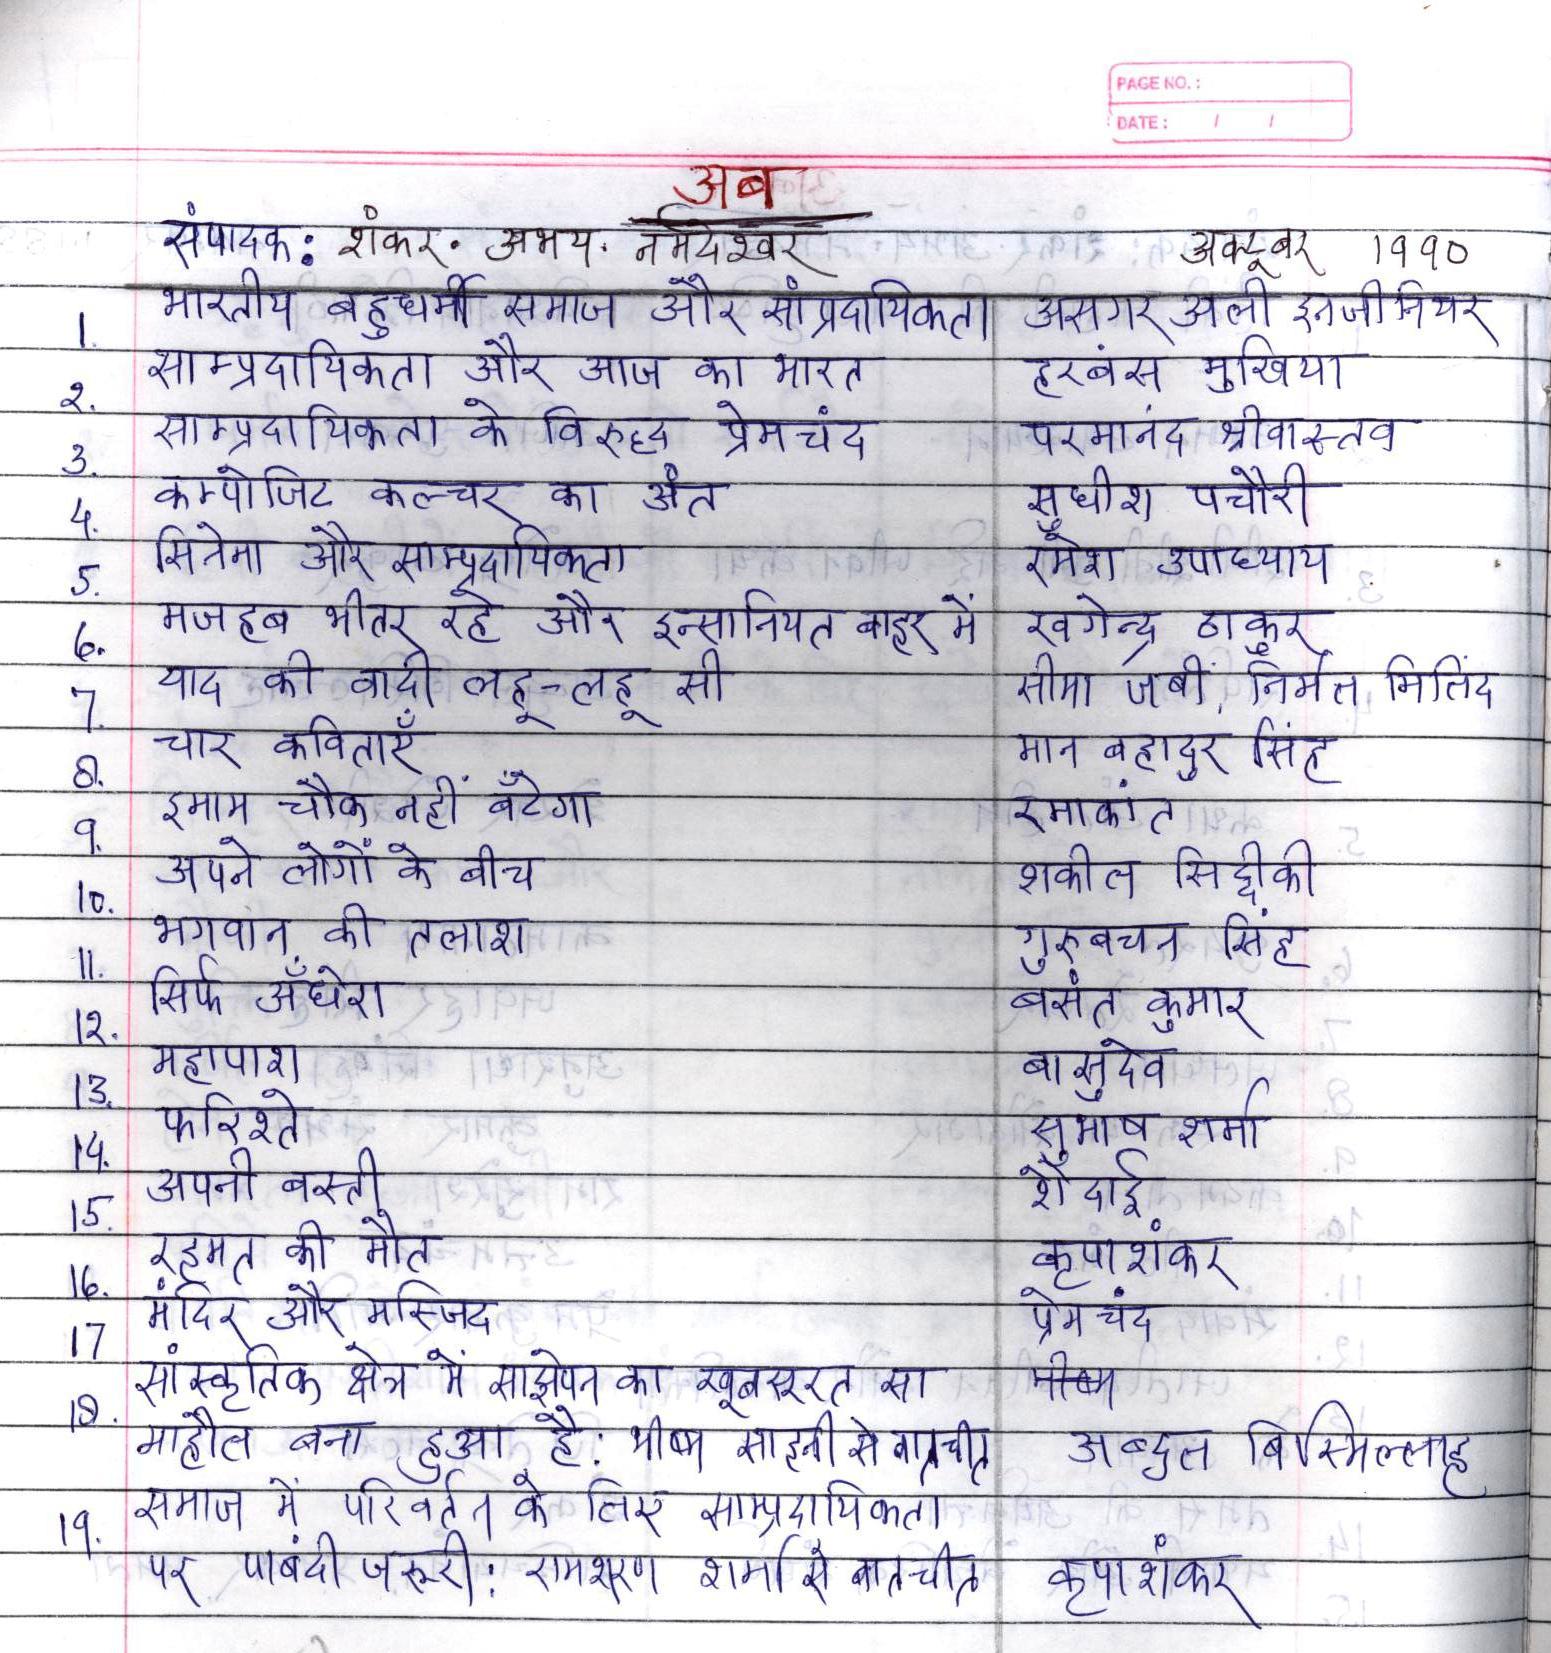 PAGE NO. :
DATE : / /
अब
संपादक: शंकर. अभय. नर्मदेश्वर अक्टूबर 1990
1. भारतीय बहुधर्मी समाज और सांप्रदायिकता असगर अली इनजीनियर
2. साम्प्रदायिकता और आज का भारत हरबंस मुखिया
3. साम्प्रदायिकता के विरुद्ध प्रेमचंद परमानंद श्रीवास्तव
4. कम्पोजिट कल्चर का अंत सुधीश पचौरी
5. सिनेमा और साम्प्रदायिकता रमेश उपाध्याय
6. मजहब भीतर रहे और इन्सानियत बाहर में खगेन्द्र ठाकुर
7. याद की वादी लहू-लहू सी सीमा जबीं, निर्मल मिलिंद
8. चार कविताएँ मान बहादुर सिंह
9. इमाम चौक नहीं बँटेगा रमाकांत
10. अपने लोगों के बीच शकील सिद्दीकी
11. भगवान की तलाश गुरुबचन सिंह
12. सिर्फ अँधेरा बसंत कुमार
13. महापाश बासुदेव
14. फरिश्ते सुभाष शर्मा
15. अपनी बस्ती शैदाई
16. रहमत की मौत कृपाशंकर
17 मंदिर और मस्जिद प्रेमचंद
18. सांस्कृतिक क्षेत्र में साझेपन का खूबसूरत सा भीष्म
माहौल बना हुआ है: भीष्म साहनी से बातचीत अब्दुल बिस्मिल्लाह
19. समाज में परिवर्तन के लिए साम्प्रदायिकता
पर पाबंदी जरूरी: रामशरण शर्मा से बातचीत कृपाशंकर